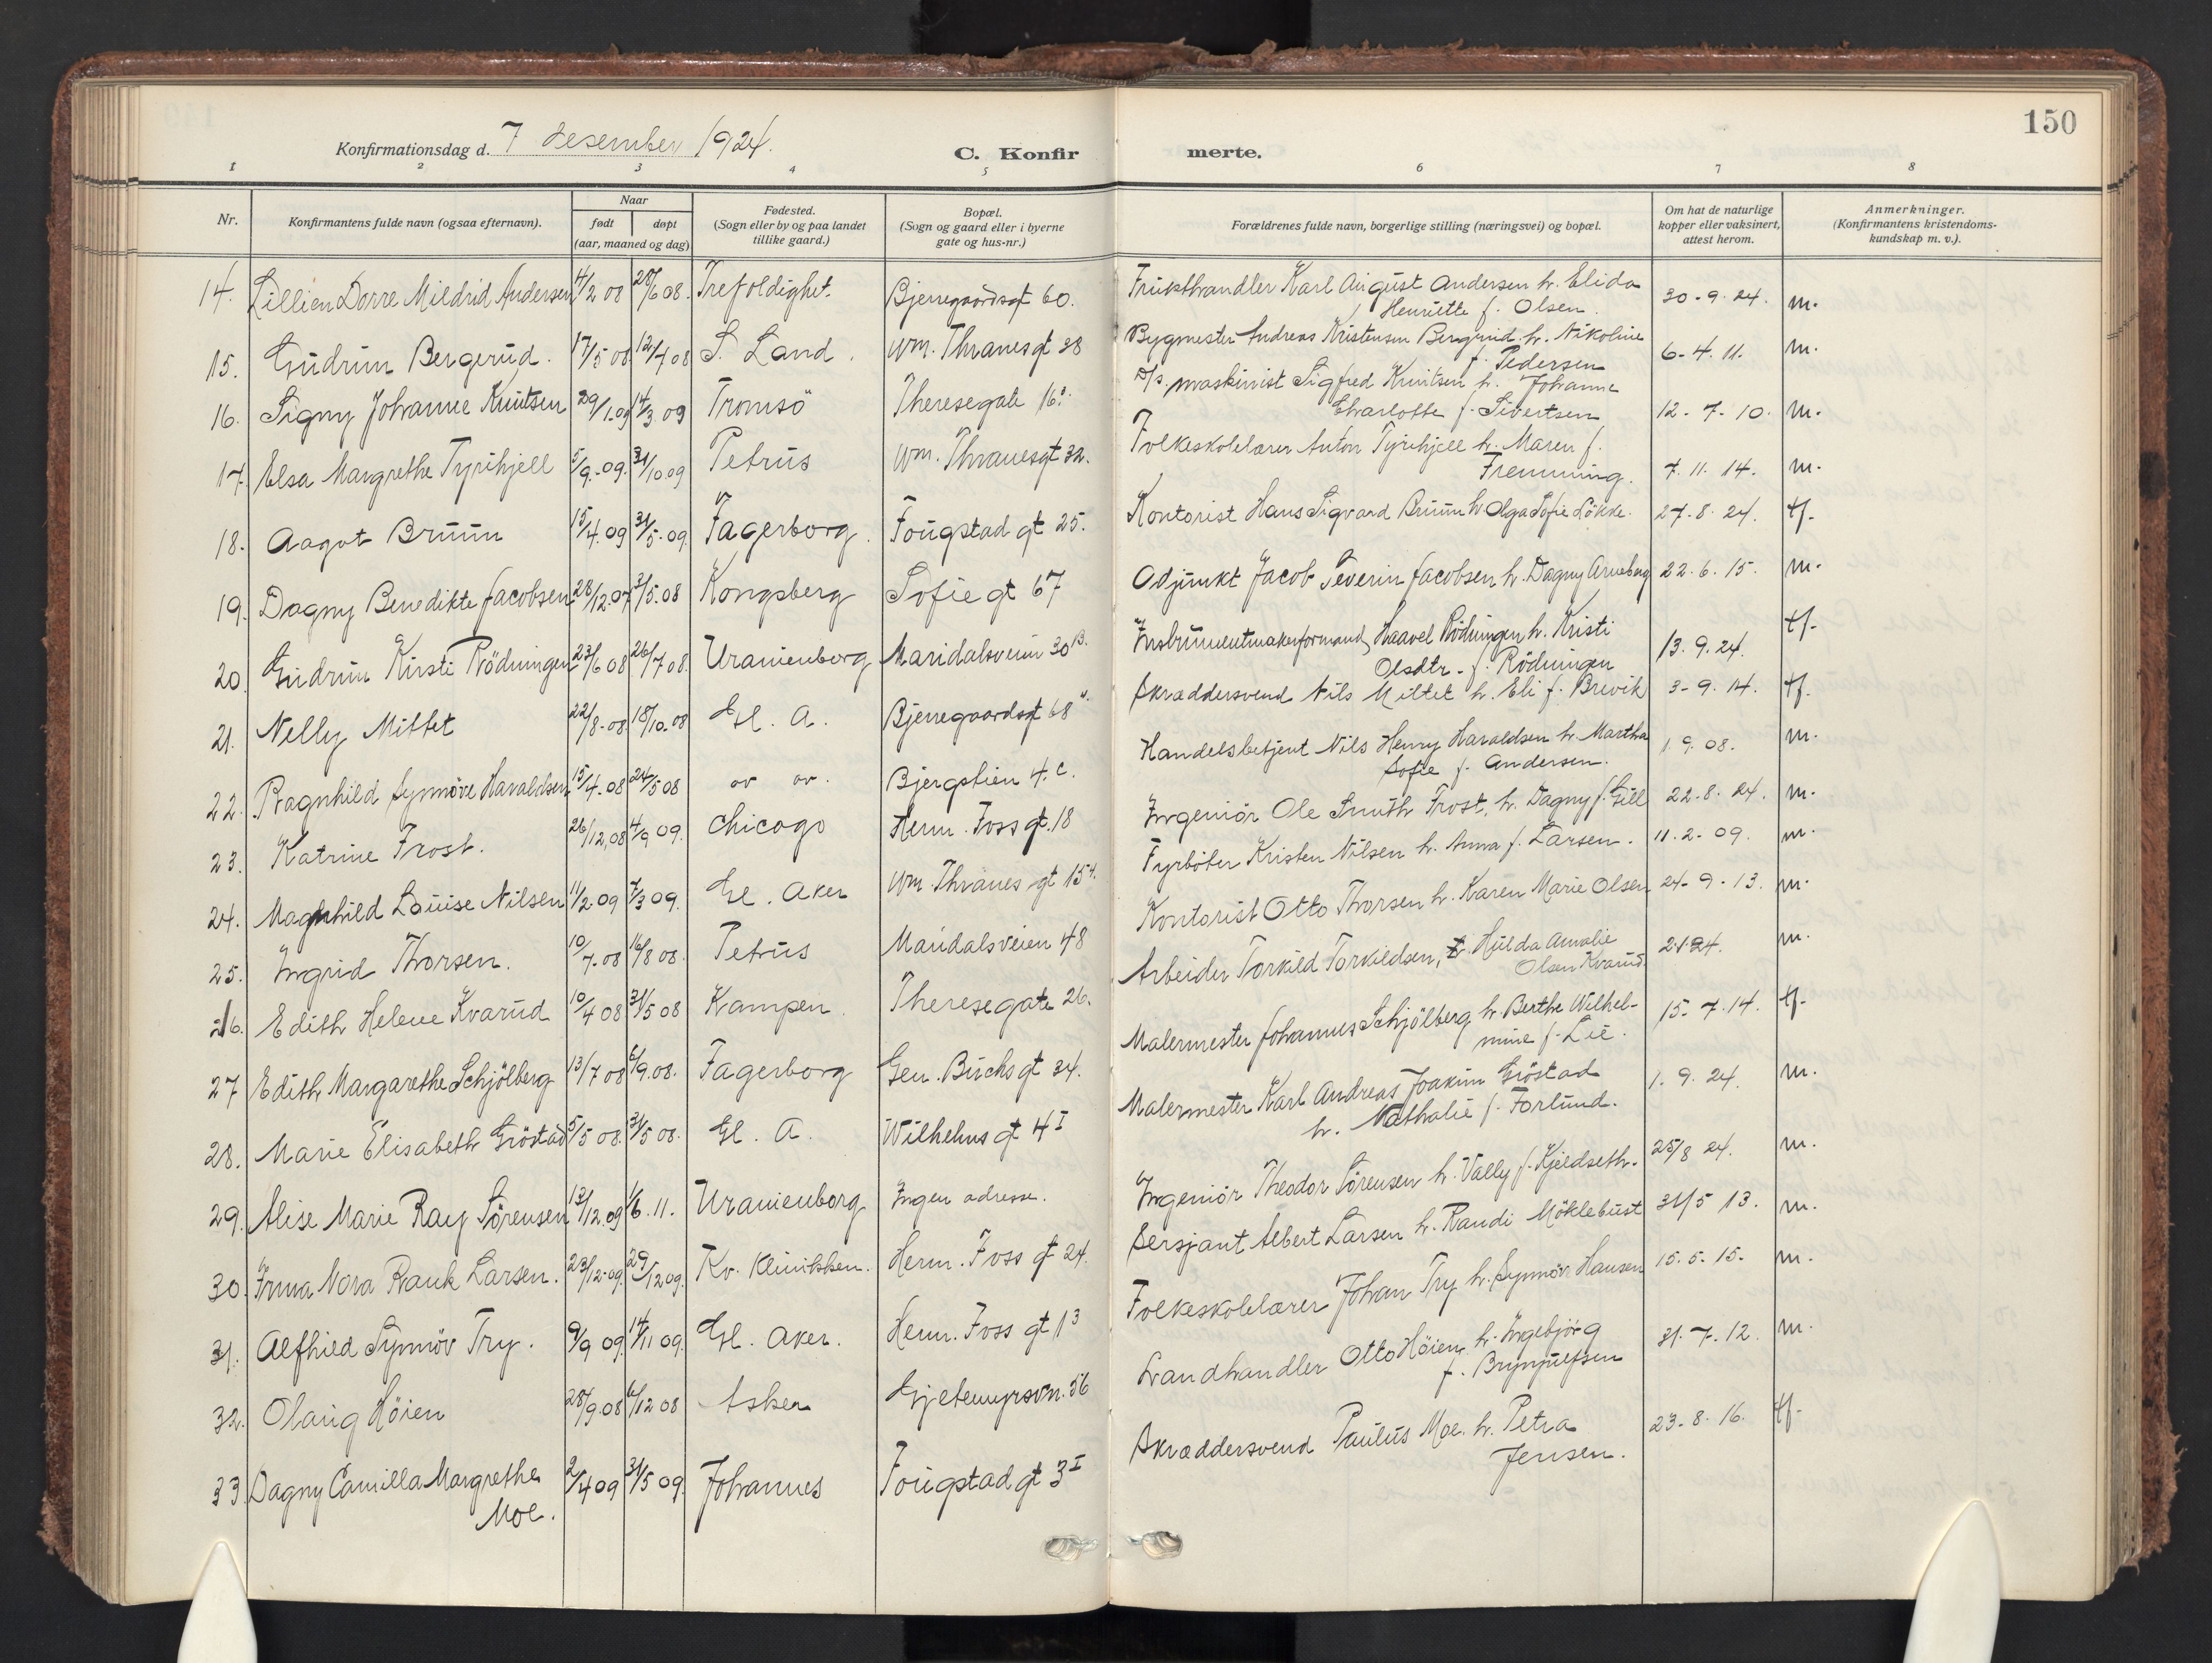 150
Konfirmationsdag d. 7 desember 1924.
C. Konfirmerte.
1 2 3 4 5 6 7 8
Nr. Konfirmantens fulde navn (ogsaa efternavn). Naar født døpt (aar, maaned og dag) Fødested. (Sogn eller by og paa landet tillike gaard.) Bopæl. (Sogn og gaard eller i byerne gate og hus-nr.) Forældrenes fulde navn, borgerlige stilling (næringsvei) og bopæl. Om hat de naturlige kopper eller vaksinert, attest herom. Anmerkninger. (Konfirmantens kristendoms-kundskap m. v.).
14. Lillien Dorre Mildrid Andersen 4/2 08 28/6 08. Trefoldighet. Bjerregaardsgt 60. Frukthandler Karl August Andersen h. Elida Henriette f. Olsen. 30-9-24. m.
15. Gudrun Bergerud. 17/5 08 12/7 08 S. Land. Wm. Thranesgt 38 Bygmester Andreas Kristensen Bergerud h. Nikoline f. Pedersen 6-4. 11. m.
16. Signy Johanne Knutsen 29/1.09 14/3 09 Tromsö Theresegate 16. D/s. maskinist Sigfred Knutsen h. Johanne Charlotte f. Sivertsen 12-7-10. m.
17. Elsa Margrethe Tyrihjell 5/9.-09. 31/10.09 Petrus Wm. Thranesgt 32. Folkeskolelærer Anton Tyrihjell h. Maren f. Fremming. 7. 11. 14. m.
18. Aagot Bruun 15/4.09 31/5.-09. Fagerborg. Fougstad gt 25. Kontorist Hans Sigvard Bruun h. Olga Sofie Lökke. 27-8-24. tf.
19. Dagny Benedikte Jacobsen 28/12.07 3/5.08 Kongsberg Sofie gt 67 Adjunkt Jacob Severin Jacobsen h. Dagny Arneberg 22. 6. 15. m.
20. Gudrun Kirsti Rödningen 23/6 08 26/7 08. Uranienborg Maridalsveien 30 B. Instrumentmakerformand Haavel Rödningen h. Kristi Olsdtr. f. Rödningen 13. 9. 24. tf.
21. Nelly Mittet 22/8-08 18/10.08 Gl. A. Bjerregaardsgt 68 Skræddersvend Nils Mittet h. Eli f. Brevik 3-9. 14. tf.
22. Ragnhild Synnöve Haraldsen 15/4-08 24/5 08 Bjergstien 4. c. Handelsbetjent Nils Henry Haraldsen h. Martha Sofie f. Andersen. 1. 9. 08. m.
23. Katrine Frost. 26/12.08 4/9 09. Chicago Herm. Foss gt. 18 Ingeniör Ole Smith Frost, h. Dagny f. Gill 22-8. 24. m.
24. Magnhild Louise Nilsen 11/2 09 7/3 09. Gl. Aker Wm. Thranes gt 15 Fyrböter Kristen Nilsen h. Anna f. Larsen. 11. 2-09. m.
25. Ingrid Thorsen. 10/7-08 16/8 08. Petrus Maridalsveien 48 Kontorist Otto Thorsen h. Karen Marie Olsen 24-9-13. m.
26. Edith Helene Kvarud 10/4 08 31/5 08 Kampen Theresegate 26. Arbeider Torkild Torkildsen, Hulda Amalie Olsen Kvarud. m.
27 Edith Margarethe Schjölberg 13/7 08 6/9.08. Fagerborg Gen. Birchs gt 34. Malermester Johannes Schjölberg h. Berthe Wilhelmine f. Lie. 15-7. 14. tf.
28. Marie Elisabeth Gröstad 5/5 08. 31/5 08. Gl. A. Wilhelms gt 4 I Malermester Karl Andreas Joakim Gröstad h. Nathalie f. Forlund. 1. 9. 24. m.
29. Alise Marie Ray Sörensen 13/12.09 1/6. 11. Uranienborg Ingen adresse. Ingeniör Theodor Sörensen h. Vally f. Kjeldseth. 25/8 24. m.
30. Irma Nora Rank Larsen. 23/12-09. 29/12 09. Kv. Klinikken. Herm. Foss gt 24. Sersjant Albert Larsen h. Randi Möklebust 31/5 13. m.
31. Alfhild Synnöv Try. 9/9 09. 14/11 09. Gl. Aker. Herm. Foss gt 13 Folkeskolelærer Johan Try h. Synnöv Hansen 15. 5. 15. m.
32. Olaug Höien 28/9.08 6/12 08 Asker Gjetemyrsvn. 56 Landhandler Otto Höien h. Ingebjörg f. Brynjulfsen 31. 7. 12. m.
33 Dagny Camilla Margrethe Moe. 2/4 09 31/5 09. Johannes Fougstad gt 3 I Skræddersvend Paulus Moe. h. Petra Jensen. 23. 8. 16. tf.